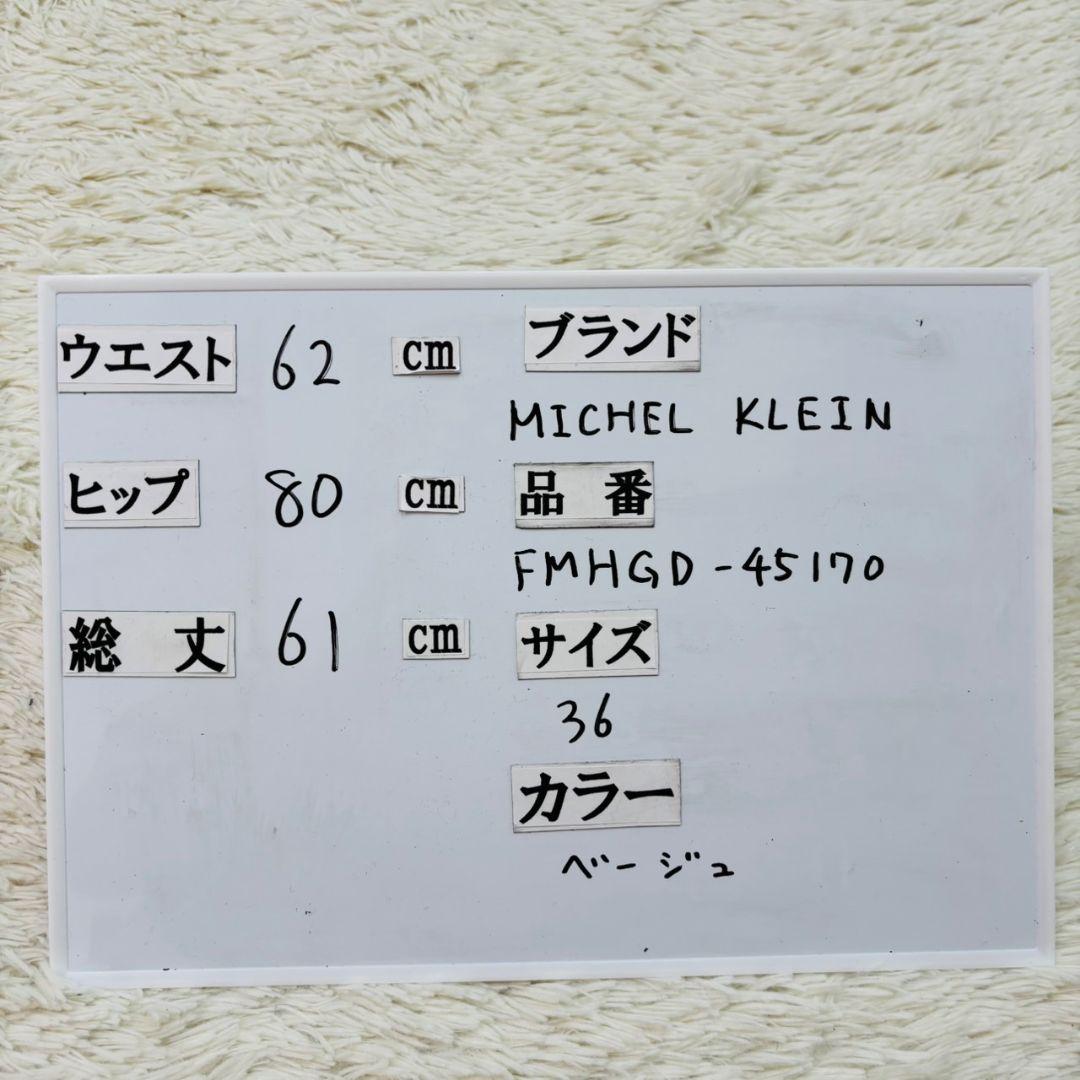 ウエスト 62 cm
ヒップ 80 cm
総 丈 61 cm
ブランド
MICHEL KLEIN
品 番
FMHGD-45170
サイズ
36
カラー
ベージュ